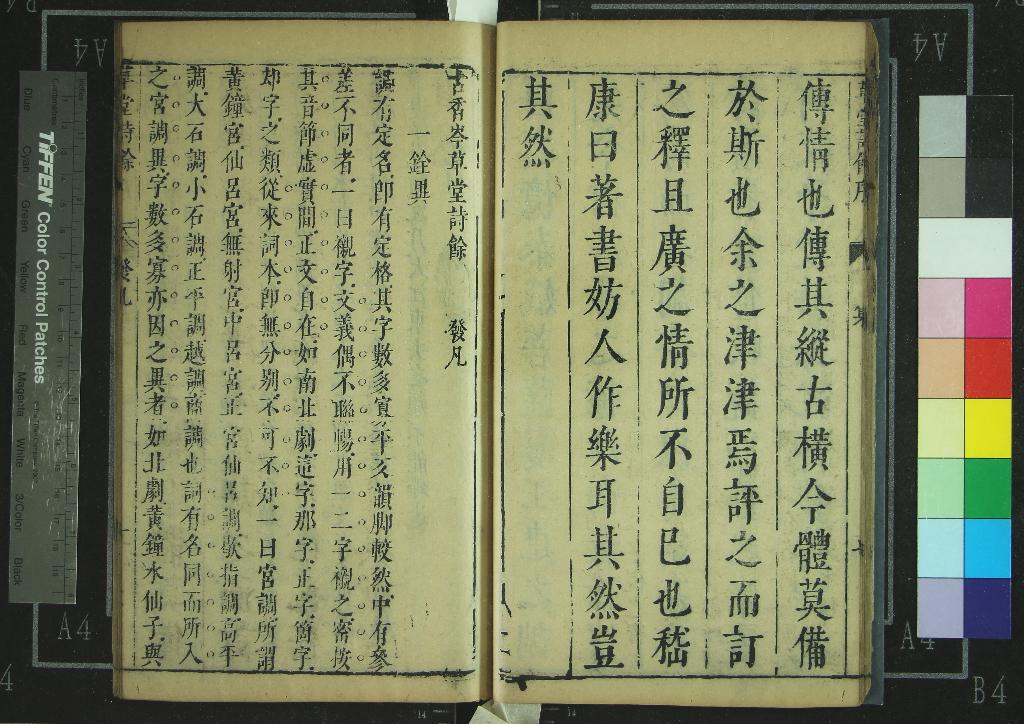 傳情也傳其縱古橫今體莫備
於斯也余之津津焉評之而訂
之釋且廣之情所不自已也嵇
康曰著書妨人作樂耳其然豈
其然
古香岑草堂詩餘 發凡
一詮異
調有定名卽有定格其字數多寡平仄韻脚較然中有參
差不同者一曰襯字文義偶不聯暢用一二字襯之密按
其音節虛實間正文自在如南北劇這字那字正字箇字
却字之類從來詞本卽無分别不可不知一曰宮調所謂
黃鐘宮仙呂宮無射宮中呂宮正宮仙呂調歇指調高平
調大石調小石調正平調越調商調也詞有名同而所入
之宮調異字數多寡亦因之異者如北劇黃鐘水仙子與
草堂詩餘 發凡
TIFFEN Color Control Patches
Blue
Cyan
Green
Yellow
Red
Magenta
White
3/Color
Black
A4
A4
A4
A4
B4